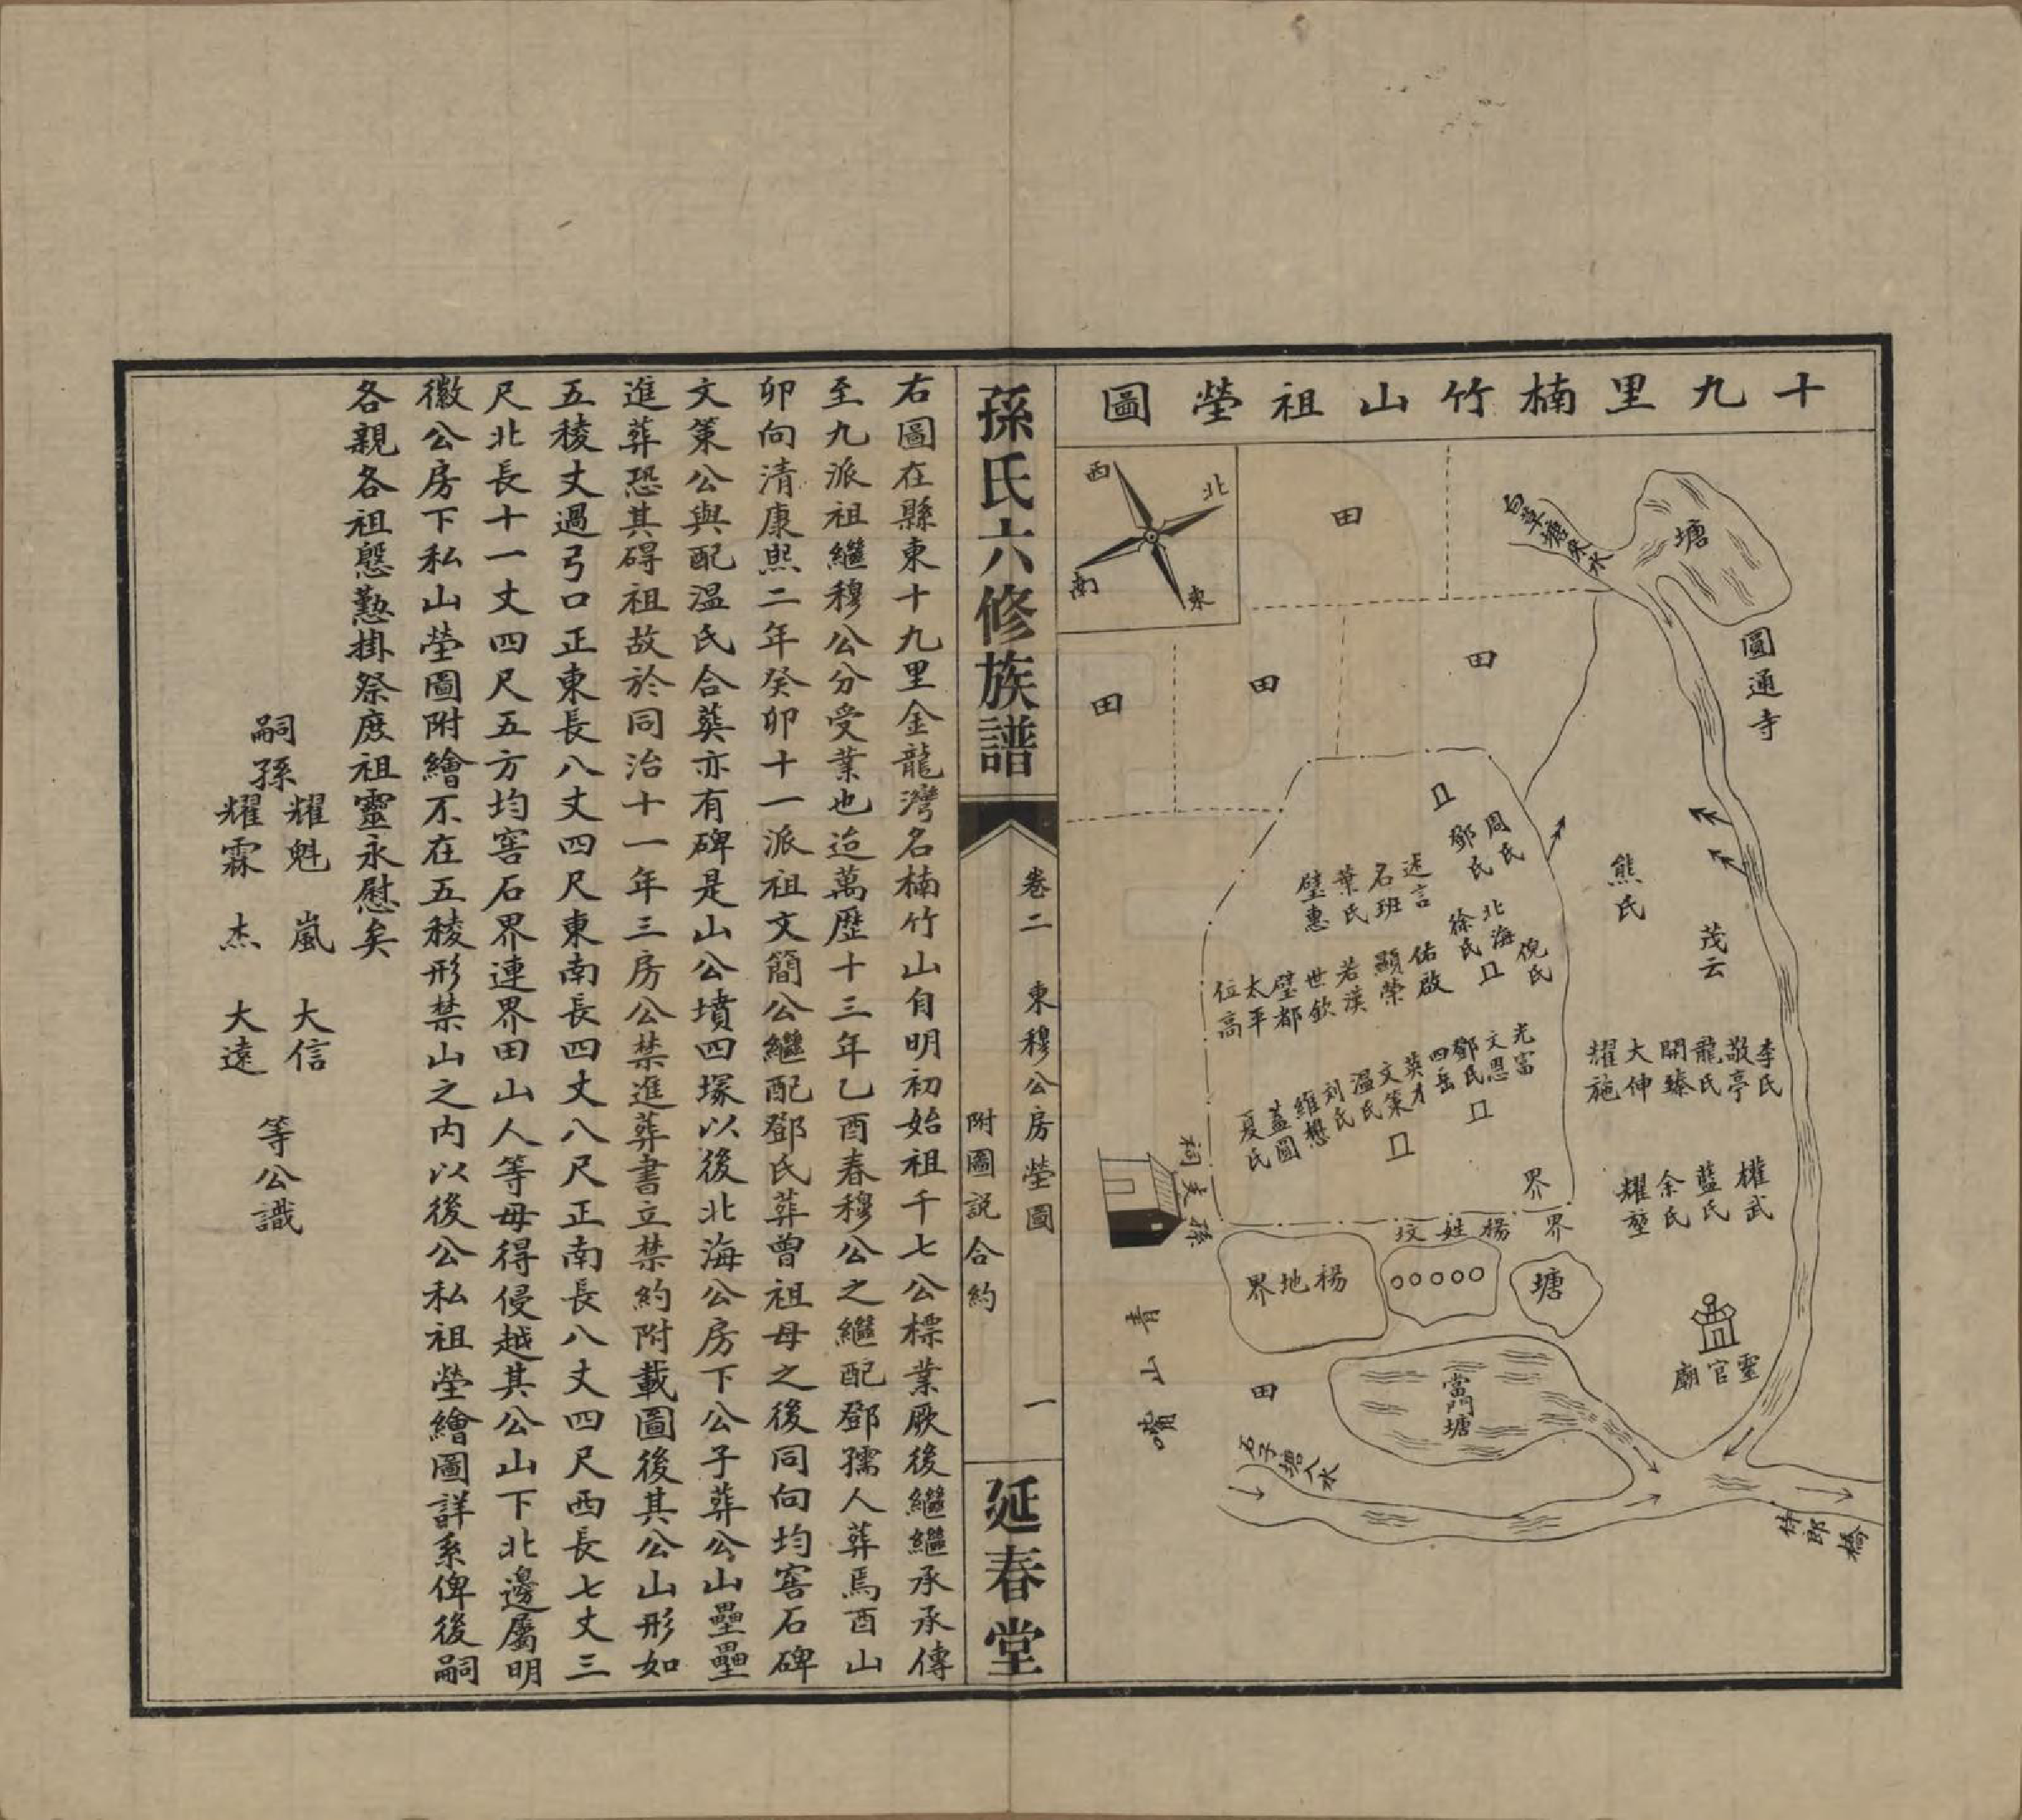 十九里楠竹山祖塋圖
西
北
南
東
田
田
田
田
白草塘來水
塘
圓通寺
周氏
鄧氏
述言
石班
葉氏
璧惠
北海
徐氏
倪氏
佑啟
顯榮
若漢
世欽
璧都
太平
位高
熊氏
茂云
光富
文恩
鄧氏
四岳
英才
文策
溫氏
刘氏
維懋
蓋圖
夏氏
李氏
敬亭
龍氏
開臻
大伸
耀施
權武
藍氏
余氏
耀堃
孫支祠
界
界
楊姓坟
楊地界
塘
靈官廟
青山嘴
田
當門塘
石子塘入水
林郎橋
孫氏六修族譜
卷二　東穆公房塋圖　一
附圖説合約
延春堂
右圖在縣東十九里金龍灣名楠竹山自明初始祖千七公標業厥後繼繼承承傳
至九派祖繼穆公分受業也迨萬歷十三年乙酉春穆公之繼配鄧孺人葬焉酉山
卯向清康熙二年癸卯十一派祖文簡公繼配鄧氏葬曾祖母之後同向均窖石碑
文策公與配溫氏合葬亦有碑是山公墳四塚以後北海公房下公子葬公山壘壘
進葬恐其碍祖故於同治十一年三房公禁進葬書立禁約附載圖後其公山形如
五稜丈過弓口正東長八丈四尺東南長四丈八尺正南長八丈四尺西長七丈三
尺北長十一丈四尺五方均窖石界連界田山人等毋得侵越其公山下北邊屬明
徽公房下私山塋圖附繪不在五稜形禁山之内以後公私祖塋繪圖詳系俾後嗣
各親各祖慇懃掛祭庶祖靈永慰矣
嗣孫
耀魁　嵐　大信
耀霖　杰　大遠
等公識